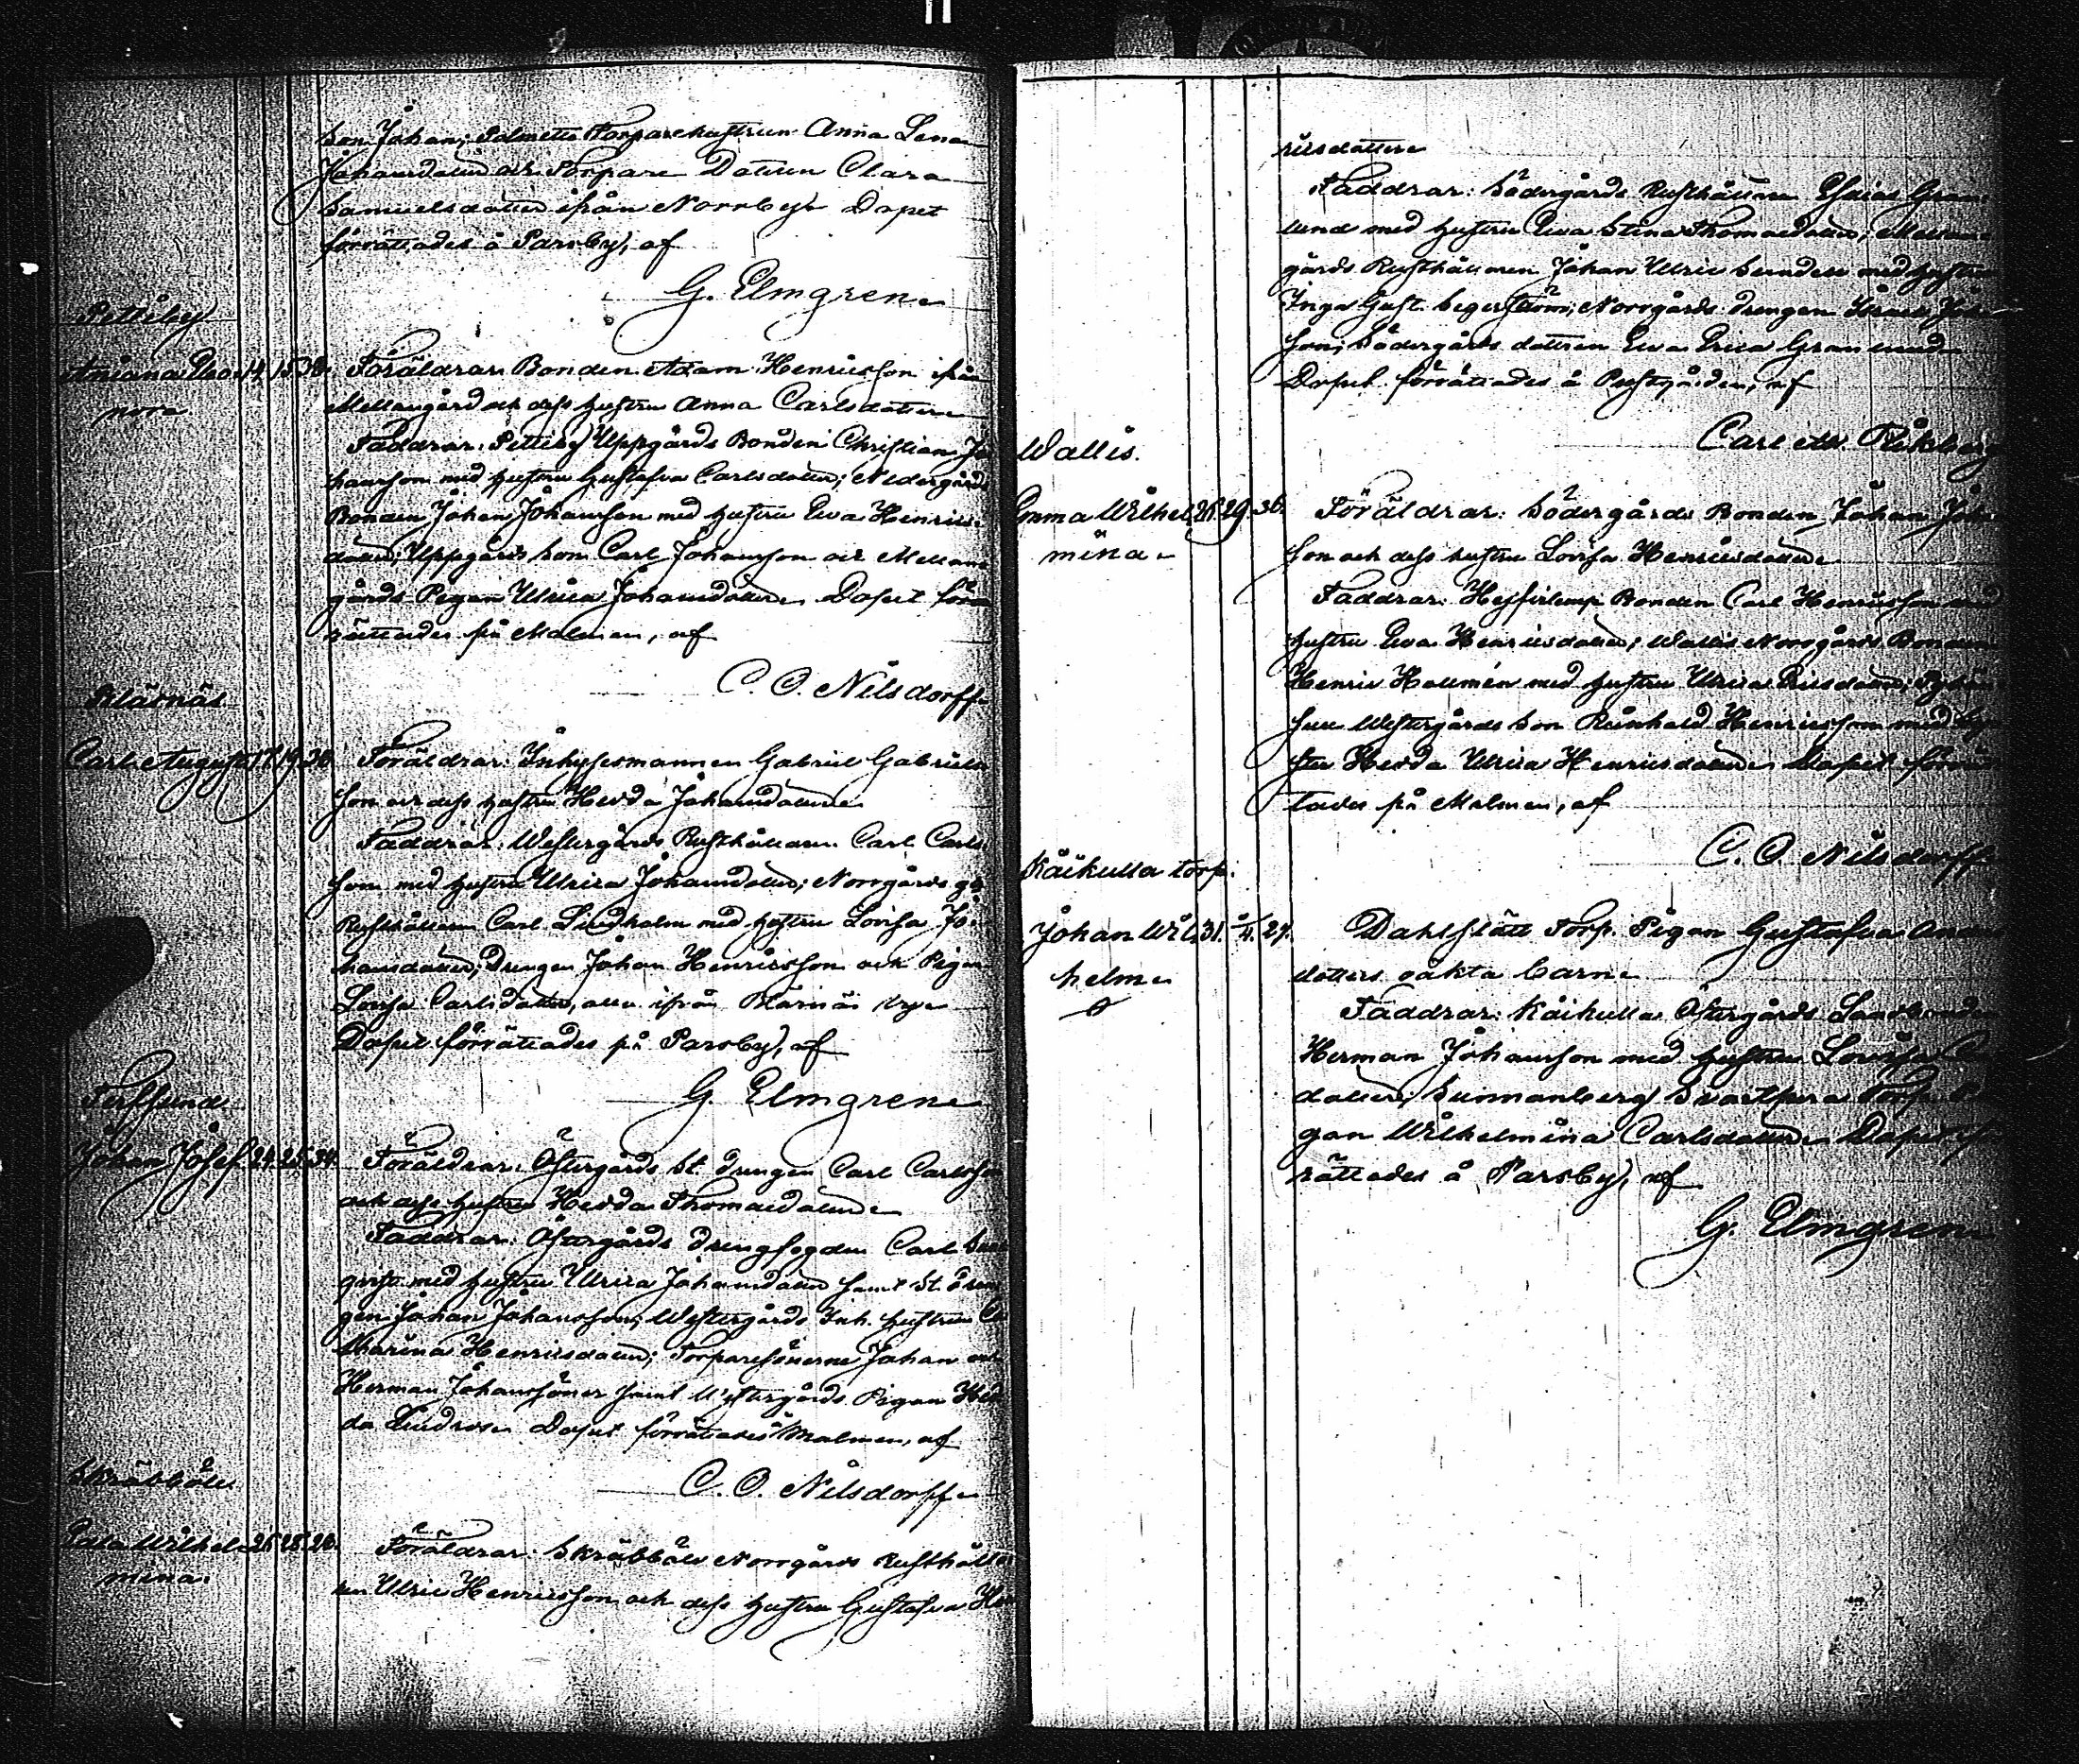 son Johan; Salmetta Torparehustrun Anna Lena
Johansdotter och Torpare Dottren Clara
Samuelsdotter ifrån Norrby. Dopet
förrättades å Parsby, af
G. Elmgren
Pettiby
Amanda Eleo- 14. 15. 38.
nora
Föräldrar: Bonden Adam Henricsson ifrån
Mellangård och dess hustru Anna Carlsdotter
Faddrar: Pettiby Uppgårds Bonden Christian Jo
hansson med hustru Gustafva Carlsdotter; Nedergårds
Bonden Johan Johansson med hustru Eva Henrics-
dotter; Uppgårds son Carl Johansson och Mellan-
gårds Pigan Ulrica Johansdotter. Dopet för-
rättades på Malmen, af
C. O. Nilsdorff
Bläsnäs
Carl August 17. 19. 30.
Föräldrar: Inhysesmannen Gabriel Gabriels
son och dess hustru Hedda Johansdotter
Faddrar: Westergårds Rusthållaren Carl Carls
son med hustru Ulrica Johansdotter; Norrgårds
Rusthållaren Carl Lindholm med hustru Lovisa Jo-
hansdotter; Drengen Johan Henricsson och Pigan
Lovisa Carlsdotter, alla ifrån Bläsnäs by
Dopet förrättades på Parsby, af
G. Elmgren
Johan Josef 24. 25. 34.
Föräldrar: Östergårds St. drengen Carl Carlsson
och dess hustru Hedda Thomasdotter
Faddrar: Östergårds drengfogden Carl
qvist med hustru Ulrica Johansdotter samt St. dren
gen Johan Johansson; Westergårds Inh. hustrun
tharina Henricsdotter; Torparesönerne Johan och
Herman Johanssöner samt Westergårds Pigan Hed
da Lindros. Dopet förrättades å Malmen, af
C. O. Nilsdorff
Skräbböle
Edla Wilhel- 25. 28. 26.
mina.
Föräldrar: Skräbböle Norrgårds Rusthålla
ren Ulric Henricsson och dess hustru Gustafva Hen
ricsdotter
Faddrar: Södergårds Rusthållaren Esaias Gran
lund med hustru Eva Stina Thomasdotter; Mellan
gårds Rusthållaren Johan Ulric Sundell med hustru
Inga Gust. Segerström; Norrgårds drengen Israel Joh
son; Södergårds dottren Eva Erica Granlund
Dopet förrättades å Prestgården, af
Carl
Wallis.
Emma Wilhel- 25. 29. 36.
mina
Föräldrar: Södergårds Bonden Johan Joh
son och dess hustru Lovisa Henricsdotter
Faddrar: Bonden Carl Henricsson med
hustru Eva Henricsdotter; Wallis Norrgårds Bonden
Henric Hollmén med hustru Ulrica Ericsdotter;
Westergårds son Reinhold Henricsson med Sy
ster Hedda Ulrica Henricsdotter. Dopet förrät
tades på Malmen, af
C. O. Nilsdorff
Käikulla torp.
Johan Wil- 31. 27.
helm
Torp. Pigan Gustafva
dotters oäkta barn
Faddrar: Käikulla Östergårds Landbonden
Herman Johansson med hustru Lovisa
dotter; Sunnanberg Torp. Pi
gan Wilhelmina Carlsdotter. Dopet för
rättades å Parsby, af
G. Elmgren